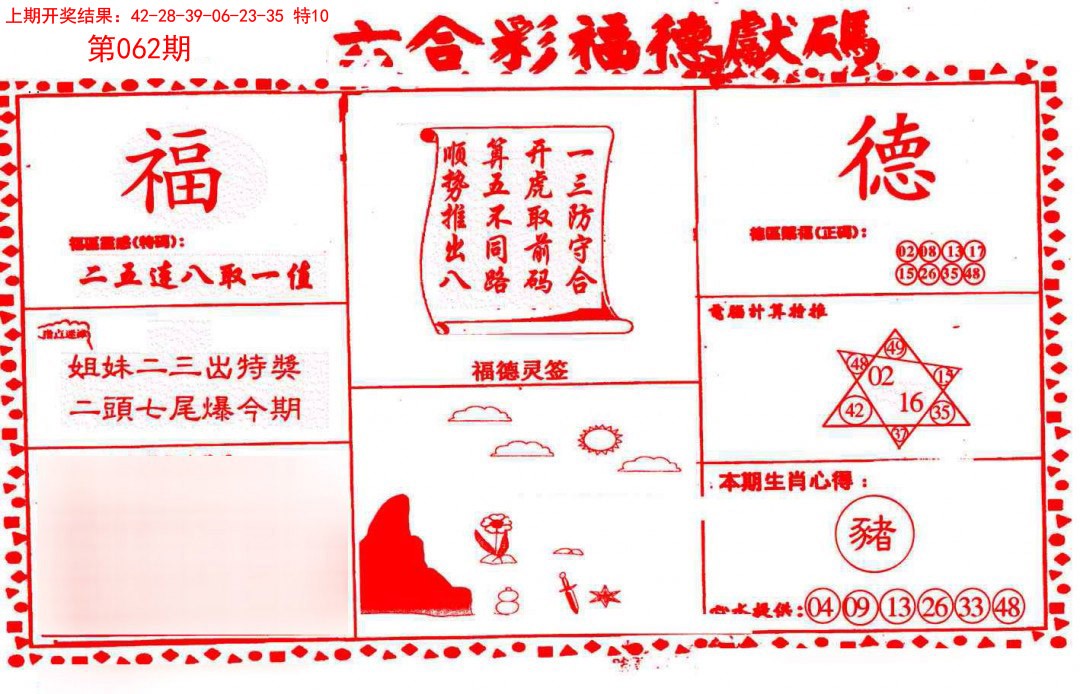 上期开奖结果：42-28-39-06-23-35 特10
第062期
六合彩福德獻碼
福
福區靈感(特碼)：
二五连八取一值
姐妹二三出特獎
二頭七尾爆今期
一三防守合
开虎取前码
算五不同路
顺势推出八
福德灵签
德
德區賜福(正碼)：
02 08 13 17
15 26 35 48
電腦計算檢推
49
48 02 15
42 16 35
37
本期生肖心得：
豬
心水提供：04 09 13 26 33 48